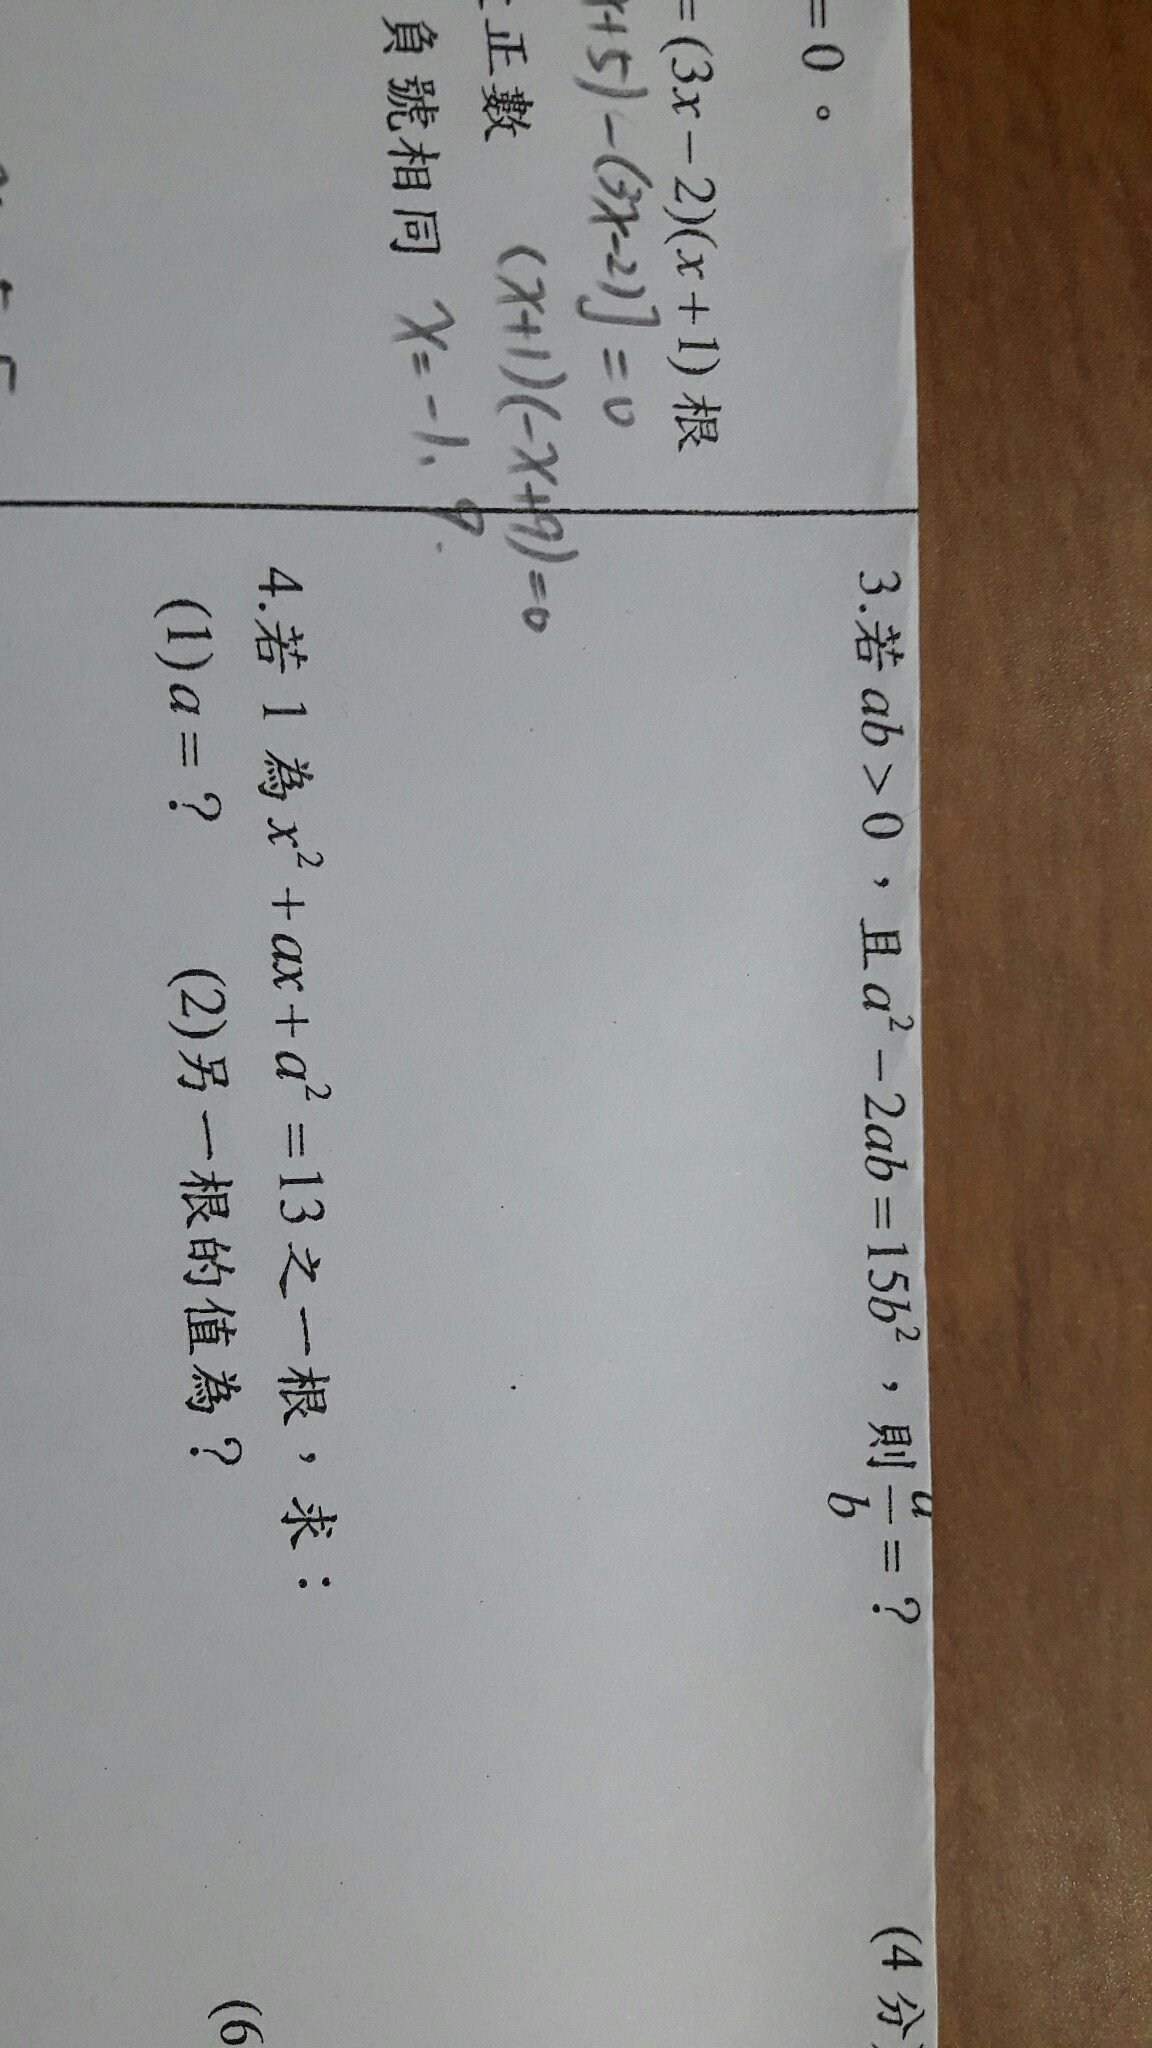 =0。
=(3x－2)(x＋1)根
x+5)-(3x-2)]=0
正數
(x+1)(-x+9)=0
負號相同
x=-1, 9.
3.若ab>0，且a²－2ab=15b²，則a/b=？
(4分)
4.若1為x²＋ax＋a²=13之一根，求：
(6
(1)a=？ (2)另一根的值為？